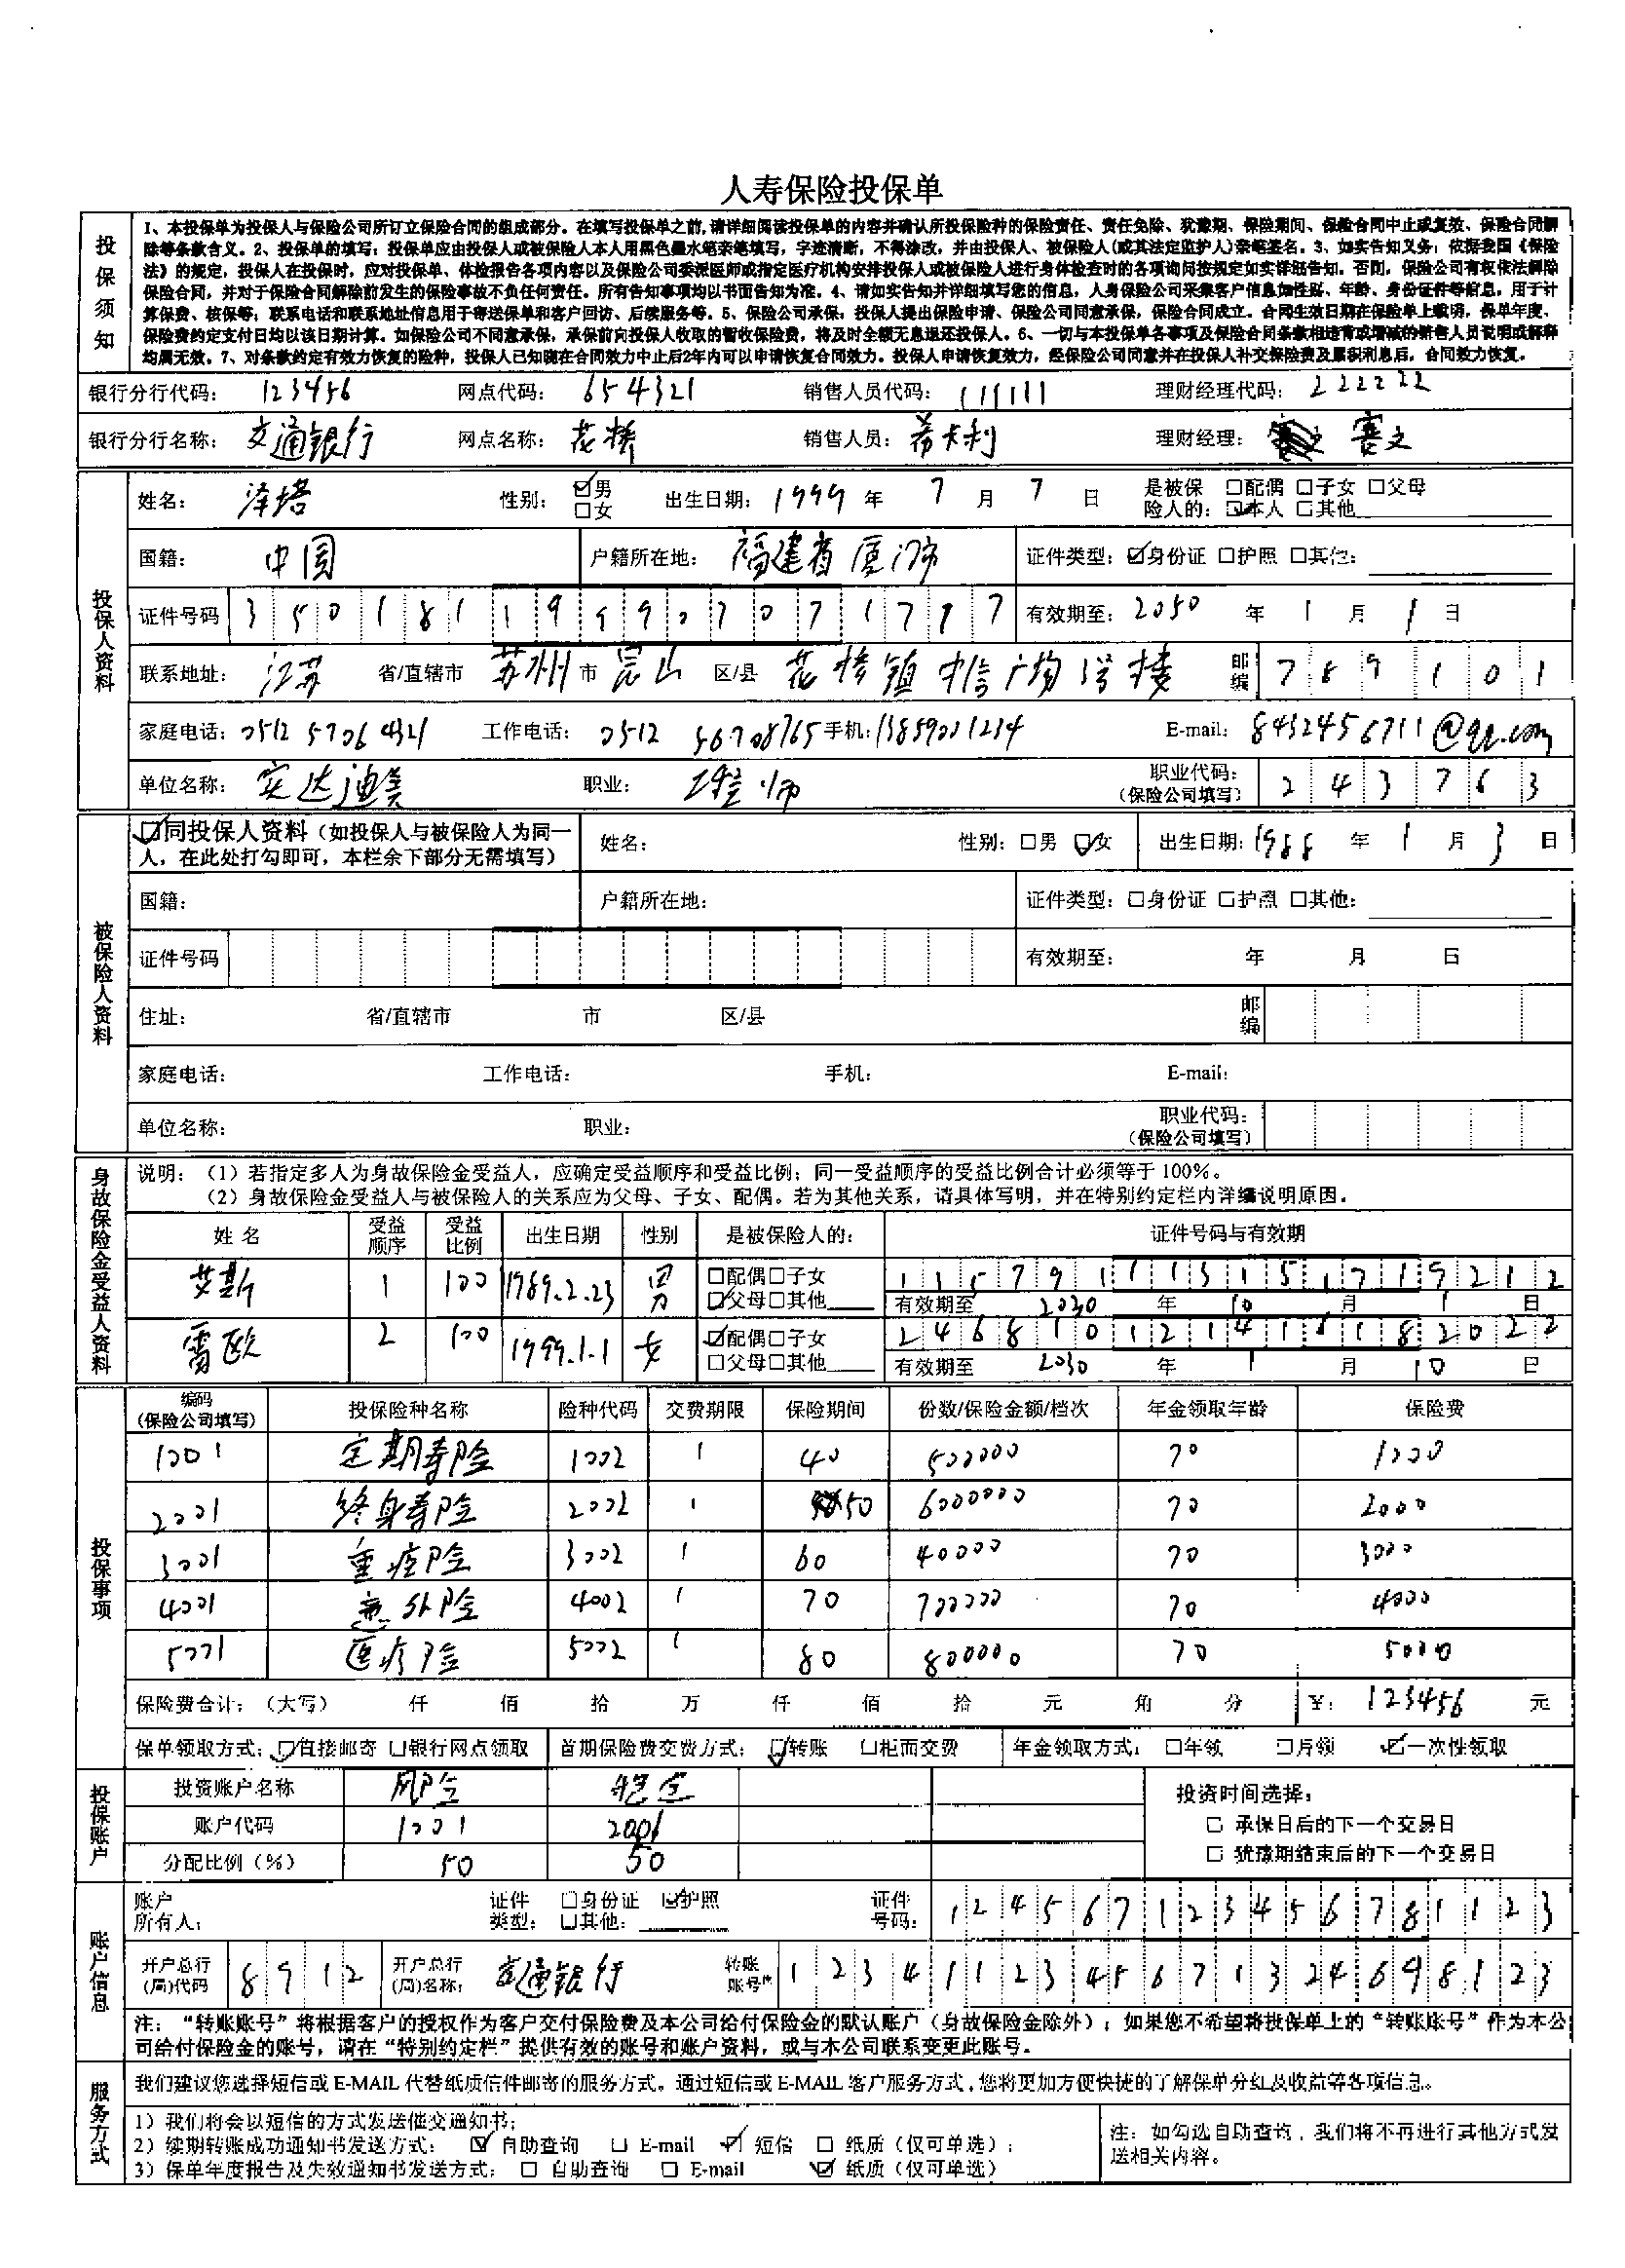 人寿保险投保单
投保须知
1、本投保单为投保人与保险公司所订立保险合同的组成部分。在填写投保单之前,请详细阅读投保单的内容并确认所投保险种的保险责任、责任免除、犹豫期、保险期间、保险合同中止或复效、保险合同解
除等条款含义。2、投保单的填写：投保单应由投保人或被保险人本人用黑色墨水笔亲笔填写，字迹清晰，不得涂改，并由投保人、被保险人(或其法定监护人)亲笔签名。3、如实告知义务：依据我国《保险
法》的规定，投保人在投保时，应对投保单、体检报告各项内容以及保险公司委派医师或指定医疗机构安排投保人或被保险人进行身体检查时的各项询问按规定如实详细告知。否则，保险公司有权依法解除
保险合同，并对于保险合同解除前发生的保险事故不负任何责任。所有告知事项均以书面告知为准。4、请如实告知并详细填写您的信息，人身保险公司采集客户信息如性别、年龄、身份证件等信息，用于计
算保费、核保等；联系电话和联系地址信息用于寄送保单和客户回访、后续服务等。5、保险公司承保：投保人提出保险申请、保险公司同意承保，保险合同成立。合同生效日期在保险单上载明，保单年度、
保险费约定支付日均以该日期计算。如保险公司不同意承保，承保前向投保人收取的暂收保险费，将及时全额无息退还投保人。6、一切与本投保单各事项及保险合同条款相违背或增减的销售人员说明或解释
均属无效。7、对条款约定有效力恢复的险种，投保人已知晓在合同效力中止后2年内可以申请恢复合同效力。投保人申请恢复效力，经保险公司同意并在投保人补交保险费及累积利息后，合同效力恢复。
银行分行代码： 123456 网点代码： 654321 销售人员代码： 111111 理财经理代码： 222222
银行分行名称： 交通银行 网点名称： 花桥 销售人员： 希卡利 理财经理： 赛文
投保人资料
姓名： 泽塔 性别： ☑男 □女 出生日期： 1999 年 7 月 7 日 是被保险人的： □配偶 □子女 □父母 ☑本人 □其他
国籍： 中国 户籍所在地： 福建省厦门市 证件类型：☑身份证 □护照 □其它：
证件号码 350181199907071777 有效期至： 2050 年 1 月 1 日
联系地址： 江苏 省/直辖市 苏州 市 昆山 区/县 花桥镇中信广场1号楼 邮编 789101
家庭电话：0512 57064321 工作电话： 0512 56708765 手机：13859001234 E-mail： 8432456711@qq.com
单位名称： 安达迪美 职业： 工程师 职业代码：（保险公司填写） 243763
被保险人资料
☑同投保人资料（如投保人与被保险人为同一人，在此处打勾即可，本栏余下部分无需填写） 姓名： 性别：□男 ☑女 出生日期：1988 年 1 月 3 日
国籍： 户籍所在地： 证件类型：□身份证 □护照 □其他：
证件号码 有效期至： 年 月 日
住址： 省/直辖市 市 区/县 邮编
家庭电话： 工作电话： 手机： E-mail：
单位名称： 职业： 职业代码：（保险公司填写）
身故保险金受益人资料
说明：（1）若指定多人为身故保险金受益人，应确定受益顺序和受益比例；同一受益顺序的受益比例合计必须等于100%。
（2）身故保险金受益人与被保险人的关系应为父母、子女、配偶。若为其他关系，请具体写明，并在特别约定栏内详细说明原因。
姓 名 受益顺序 受益比例 出生日期 性别 是被保险人的： 证件号码与有效期
艾斯 1 100 1989.2.23 男 □配偶□子女 ☑父母□其他 135791113151719212
有效期至 2030 年 10 月 1 日
雷欧 2 100 1999.1.1 女 ☑配偶□子女 □父母□其他 246810121416182022
有效期至 2030 年 1 月 10 日
投保事项
编码（保险公司填写） 投保险种名称 险种代码 交费期限 保险期间 份数/保险金额/档次 年金领取年龄 保险费
1001 定期寿险 1002 1 40 500000 70 1000
2001 终身寿险 2002 1 50 6000000 70 2000
3001 重症险 3002 1 60 40000 70 3000
4001 意外险 4002 1 70 700000 70 4000
5001 医疗险 5002 1 80 800000 70 5000
保险费合计：（大写） 仟 佰 拾 万 仟 佰 拾 元 角 分 ￥： 123456 元
保单领取方式：☑直接邮寄 □银行网点领取 首期保险费交费方式：☑转账 □柜面交费 年金领取方式：□年领 □月领 ☑一次性领取
投保账户
投资账户名称 风险 稳定
账户代码 1001 2001
分配比例（%） 50 50
投资时间选择：
□ 承保日后的下一个交易日
□ 犹豫期结束后的下一个交易日
账户信息
账户所有人： 证件类型： □身份证 ☑护照 □其他： 证件号码： 124567123456781123
开户总行(局)代码 8912 开户总行(局)名称： 交通银行 转账账号 1234112345671324698123
注：“转账账号”将根据客户的授权作为客户交付保险费及本公司给付保险金的默认账户（身故保险金除外）；如果您不希望将投保单上的“转账账号”作为本公
司给付保险金的账号，请在“特别约定栏”提供有效的账号和账户资料，或与本公司联系变更此账号。
服务方式
我们建议您选择短信或 E-MAIL 代替纸质信件邮寄的服务方式。通过短信或 E-MAIL 客户服务方式，您将更加方便快捷的了解保单分红及收益等各项信息。
1）我们将会以短信的方式发送催交通知书；
2）续期转账成功通知书发送方式： ☑ 自助查询 □ E-mail ☑ 短信 □ 纸质（仅可单选）；
3）保单年度报告及失效通知书发送方式： □ 自助查询 □ E-mail ☑ 纸质（仅可单选）
注：如勾选自助查询，我们将不再进行其他方式发
送相关内容。